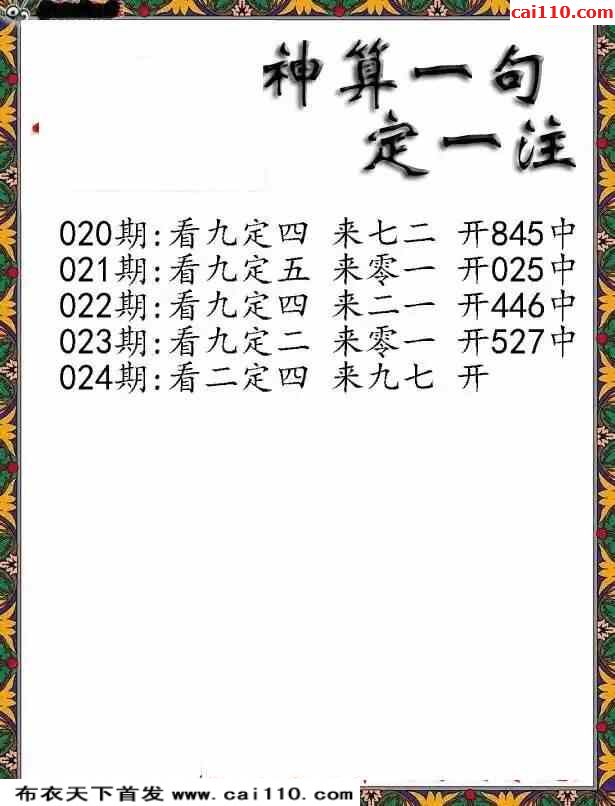 cai110.com
神算一句
定一注
020期:看九定四 来七二 开845中
021期:看九定五 来零一 开025中
022期:看九定四 来二一 开446中
023期:看九定二 来零一 开527中
024期:看二定四 来九七 开
布衣天下首发 www.cai110.com